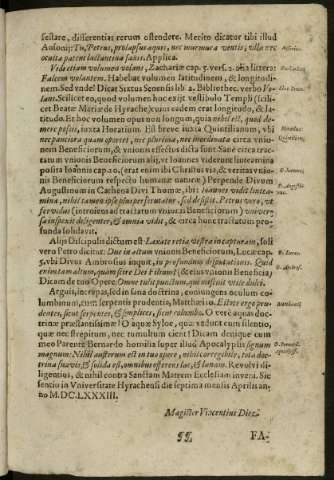 sectare, differentias rerum ostendere. Merito dicatur tibi illud
Ausonij: Tu, Petrus, prolapsus aquis, nec murmura ventis, vlla nec
occulta parent luctamina saxis. Applica.
Vide etiam volumen volans, Zachariæ cap. 5. vers. 2. aliâ littera:
Falcem volantem. Habebat volumen latitudinem, & longitudi-
nem. Sed vnde? Dicat Sixtus Senensis lib. 2. Bibliothec. verbo Vo-
lans. Scilicet eo, quod volumen hoc exijt vestibulo Templi (scili-
cet Beatæ Mariæ de Hyrache) cuius eadem erat longitudo, & la-
titudo. Et hoc volumen opus non longum, quia nihil est, quod de-
mere possis, iuxta Horatium. Est breve iuxta Quintilianum, vbi
nec pauciora quam oportet, nec plurima, nec inordinata circa vnio-
nem Beneficiorum, & vnionis effectus dicta sunt. Sane circa trac-
tatum vnionis Beneficiorum alij, vt Ioannes viderunt linteamina
posita Ioannis cap. 20. (erat enim ibi Christus via, & veritas vnio-
nis Beneficiorum respectu humanæ naturæ) Perpende Divum
Augustinum in Cathena Divi Thomæ, ibi: Ioannes vidit lintea-
mina, nihil tamen ipse plus perscrutatur, sed desistit. Petrus vero, vt
fervidus (introiens ad tractatum vnionis Beneficiorum) vniver-
sa inspexit diligenter, & omnia vidit, & circa hunc tractatum pro-
funda solidavit.
Alijs Discipulis dictum est: Laxate retia vestra in capturam, soli
vero Petro dicitur: Duc in altum vnionis Beneficiorum, Lucæ cap.
5. vbi Divus Ambrosius inquit, in profundum disputationis. Quid
enim tam altum, quam scire Dei Filium? (& eius vnionis Beneficia)
Dicam de tuo Opere: Omne tulit punctum, qui miscuit vtile dulci.
Arguis, increpas, sed in sana doctrina, coniungens oculum co-
lumbinum, cum serpentis prudentia, Matthæi 10. Estote ergo pru-
dentes, sicut serpentes, & simplices, sicut columbæ. O veræ aquæ doc-
trinæ præstantissimæ! O aquæ Syloe, quæ vaducut cum silentio,
quæ nec strepitum, nec tumultum cient! Dicam denique cum
meo Parente Bernardo homilia super illud Apocalypsis signum
magnum: Nihil austerum est in tuo opere, nihil corrigibile, tota doc-
trina suavis, & solida est, omnibus offerens lac, & lanam. Revolvi di-
ligentius, & nihil contra Sanctam Matrem Ecclesiam inveni. Sic
sentio in Vniversitate Hyrachensi die septima mensis Aprilis an-
no M.DC.LXXXIII.
Magister Vincentius Diez.
FA-